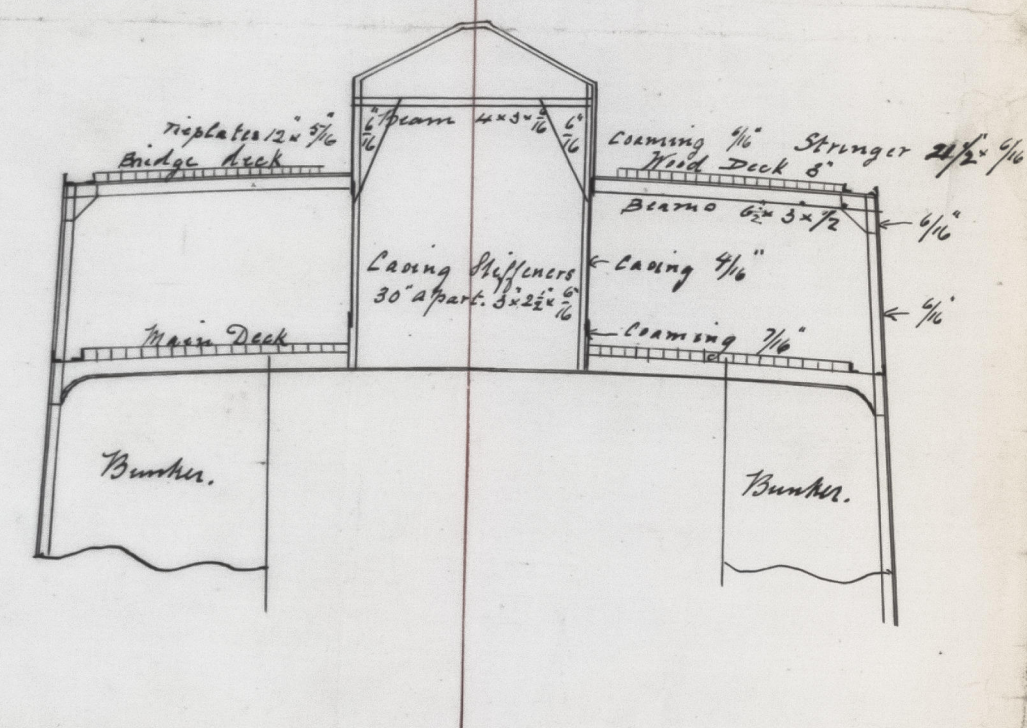 Tieplates 12" x 5/16"
Bridge deck
6/16"
Beam 4 x 3 x 6/16
6/16"
Coaming 6/16"
Stringer 21 1/2" x 6/16
Wood Deck 3"
Beams 6 1/2" x 3" x 1/2
6/16"
Casing Stiffeners
30" apart. 3" x 2 1/2" x 6/16"
Casing 4/16"
6/16"
Main Deck
Coaming 7/16"
Bunker.
Bunker.